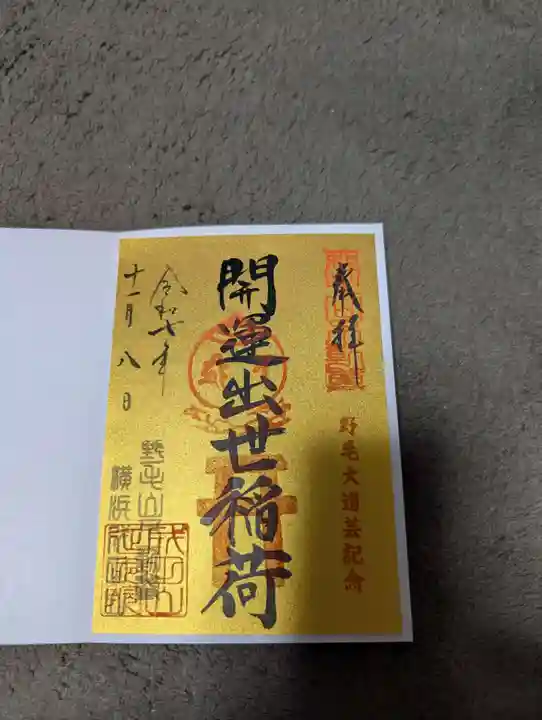 奉拝
野毛大道芸記念
開運出世稲荷
令和七年
十一月八日
横浜
野毛山不動尊
成田山